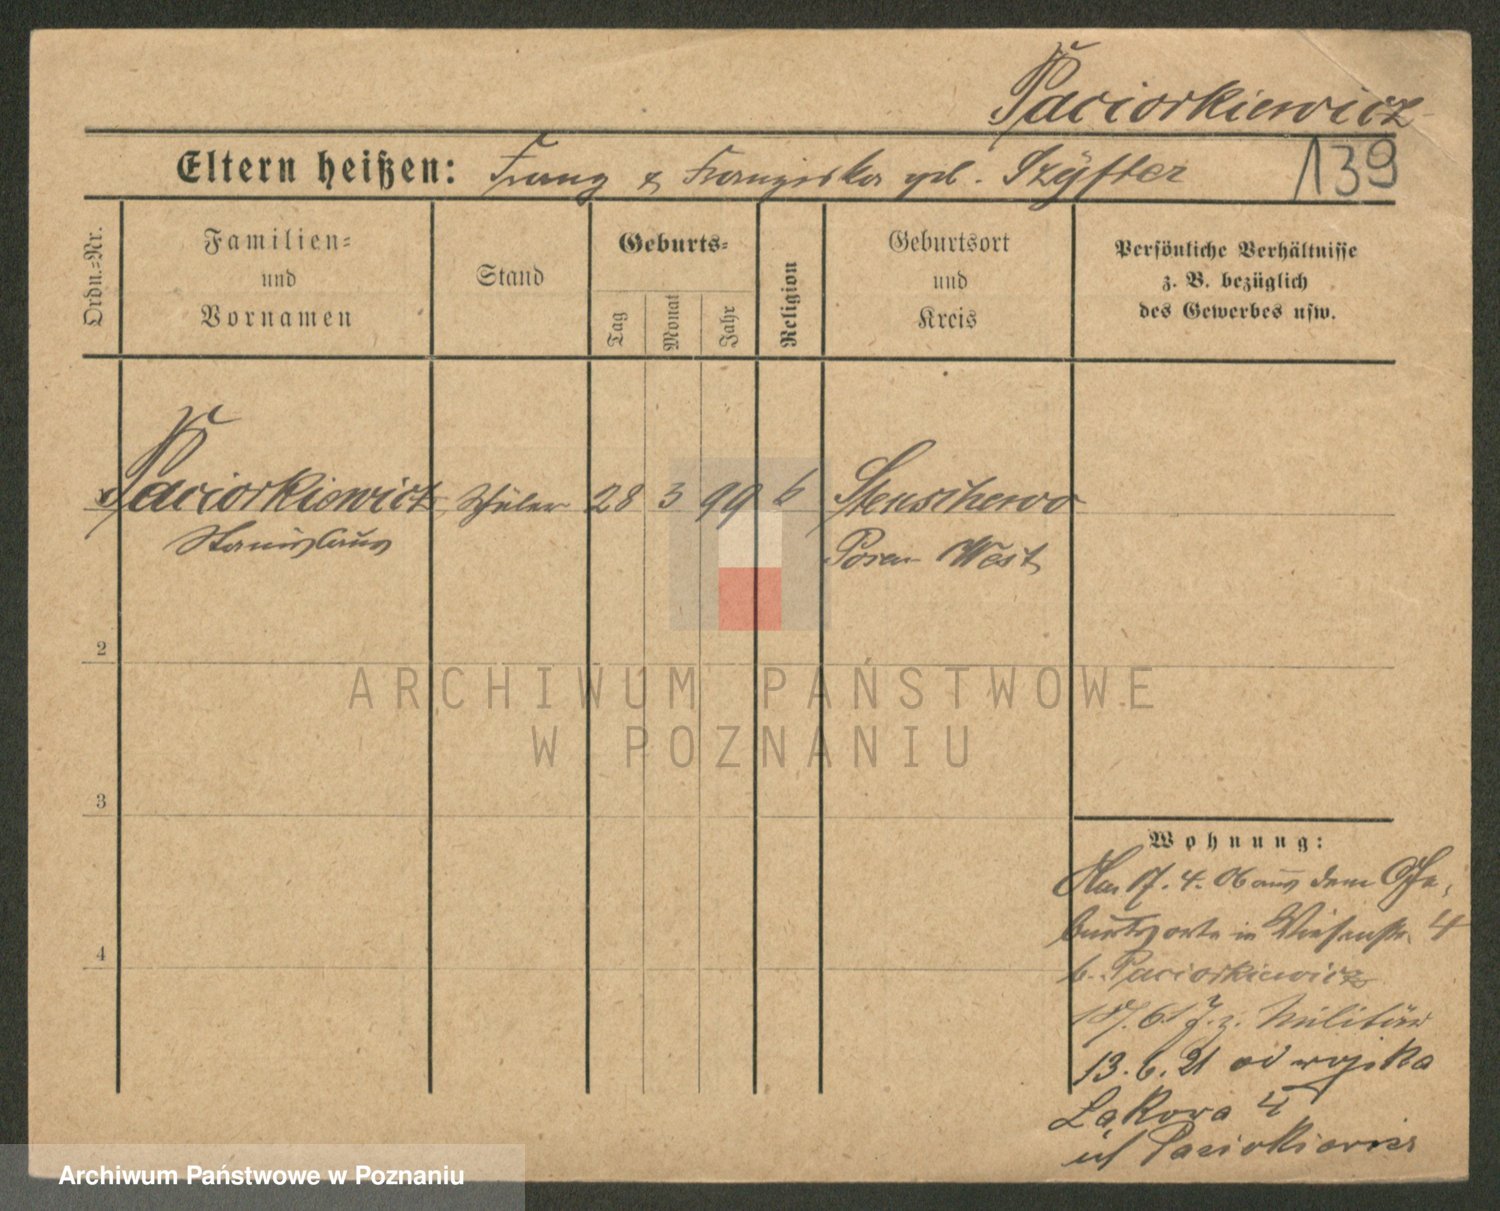 Paciorkiewicz
Eltern heißen: Franz & Franziska geb. Szÿfter 139
Ordn.-Nr.
Familien-
und
Vornamen
Stand
Geburts-
Tag
Monat
Jahr
Religion
Geburtsort
und
Kreis
Persönliche Verhältnisse
z. B. bezüglich
des Gewerbes usw.
Paciorkiewicz Schüler 28 3 99 Stenschewo
Stanislaus Posen West
2
3
4
Wohnung:
17. 4. 06 aus dem Ge-
burtsorte in Wiesenstr. 4
b. Paciorkiewicz
z. Militär
13. 6. 21 od wojska
Łąkowa 4
Paciorkiewicz
ARCHIWUM PAŃSTWOWE
W POZNANIU
Archiwum Państwowe w Poznaniu